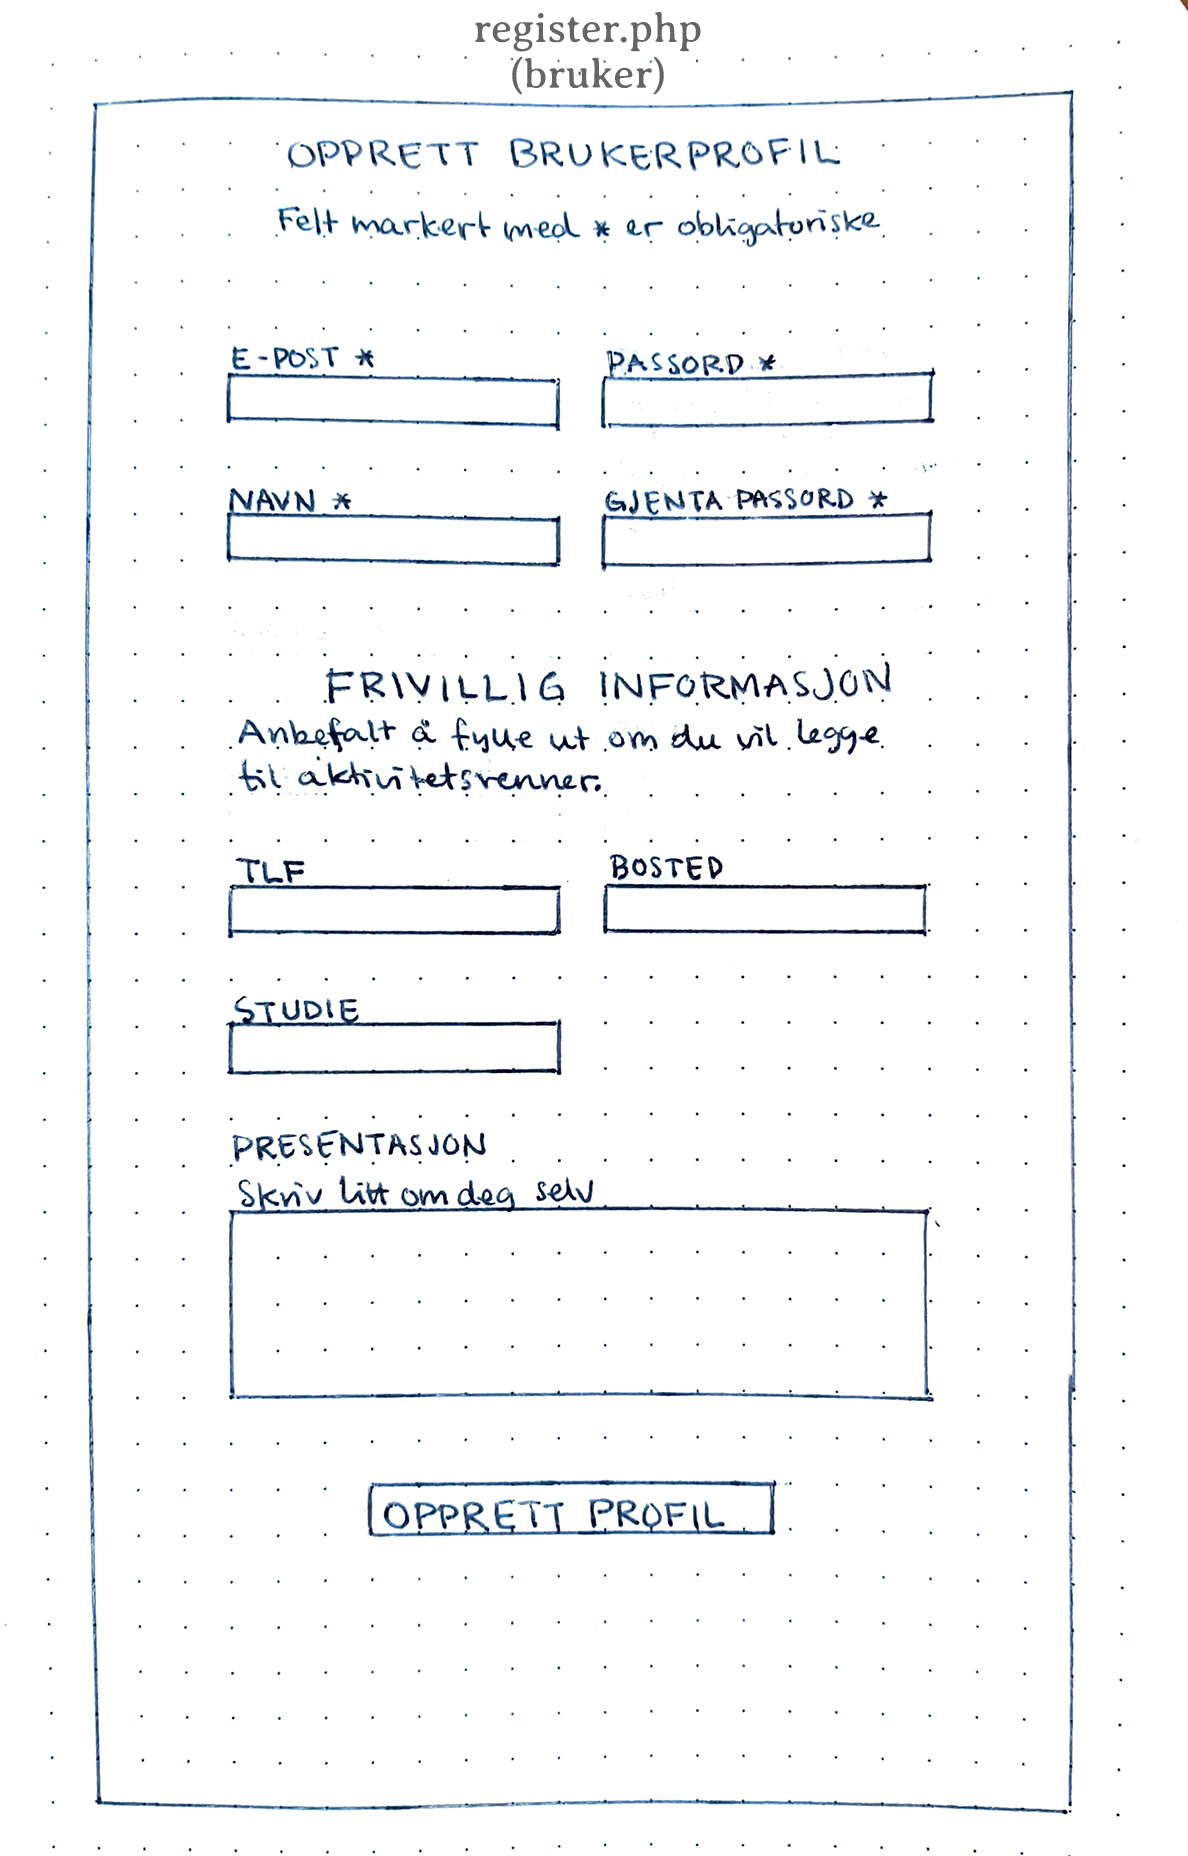 register.php
(bruker)
OPPRETT BRUKERPROFIL
Felt markert med * er obligatoriske
E-POST *
PASSORD *
NAVN *
GJENTA PASSORD *
FRIVILLIG INFORMASJON
Anbefalt å fylle ut om du vil legge
til aktivitetsvenner.
TLF
BOSTED
STUDIE
PRESENTASJON
Skriv litt om deg selv
OPPRETT PROFIL